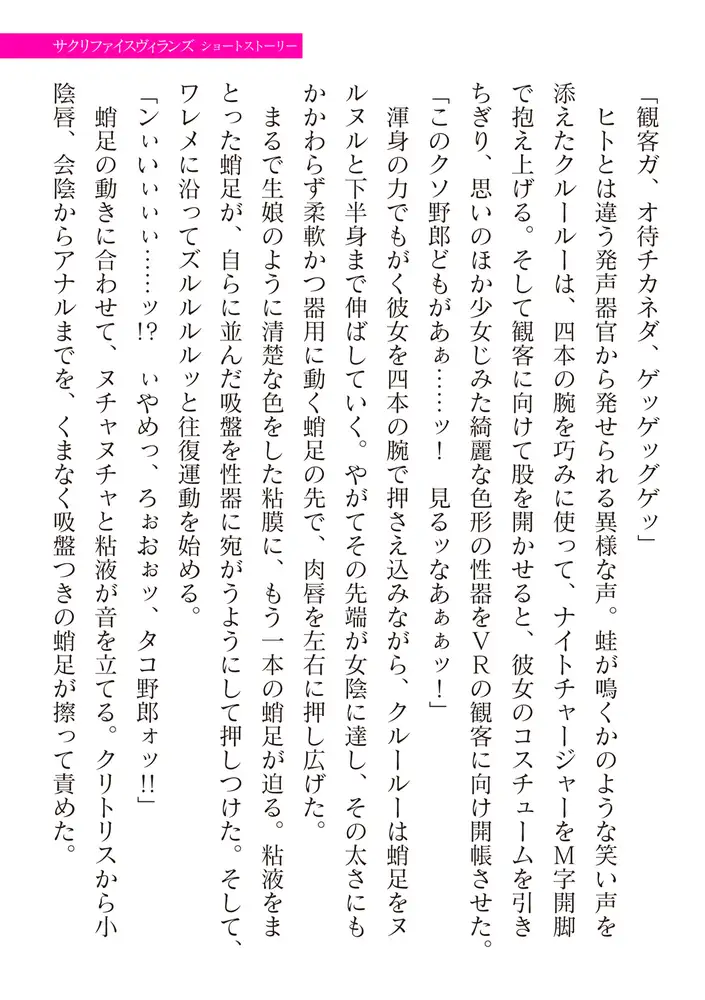 サクリファイスヴィランズ ショートストーリー
「観客ガ、オ待チカネダ、ゲッゲッグゲッ」
ヒトとは違う発声器官から発せられる異様な声。蛙が鳴くかのような笑い声を
添えたクルールーは、四本の腕を巧みに使って、ナイトチャージャーをＭ字開脚
で抱え上げる。そして観客に向けて股を開かせると、彼女のコスチュームを引き
ちぎり、思いのほか少女じみた綺麗な色形の性器をＶＲの観客に向け開帳させた。
「このクソ野郎どもがあぁ……ッ！　見るッなあぁぁッ！」
渾身の力でもがく彼女を四本の腕で押さえ込みながら、クルールーは蛸足をヌ
ルヌルと下半身まで伸ばしていく。やがてその先端が女陰に達し、その太さにも
かかわらず柔軟かつ器用に動く蛸足の先で、肉唇を左右に押し広げた。
まるで生娘のように清楚な色をした粘膜に、もう一本の蛸足が迫る。粘液をま
とった蛸足が、自らに並んだ吸盤を性器に宛がうようにして押しつけた。そして、
ワレメに沿ってズルルルルッと往復運動を始める。
「ンぃいぃぃぃ……ッ!?　ぃやめっ、ろぉおぉッ、タコ野郎ォッ!!」
蛸足の動きに合わせて、ヌチャヌチャと粘液が音を立てる。クリトリスから小
陰唇、会陰からアナルまでを、くまなく吸盤つきの蛸足が擦って責めた。